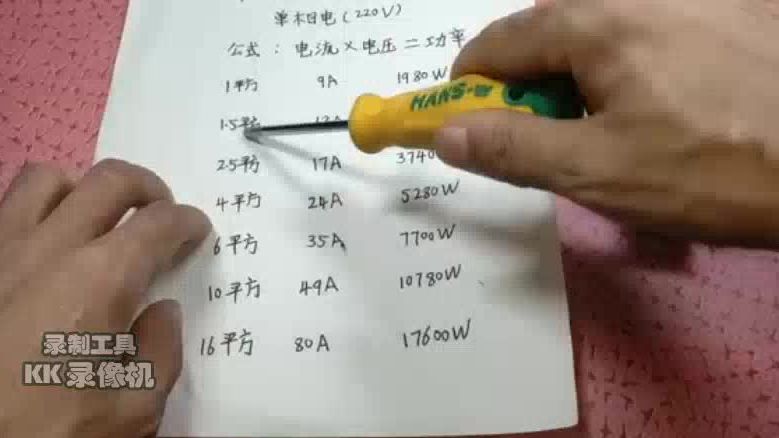 单相电（220V）
公式：电流×电压＝功率
1平方 9A 1980W
HANS-w
1.5平方 13A
2.5平方 17A 3740
4平方 24A 5280W
6平方 35A 7700W
10平方 49A 10780W
16平方 80A 17600W
录制工具
KK录像机